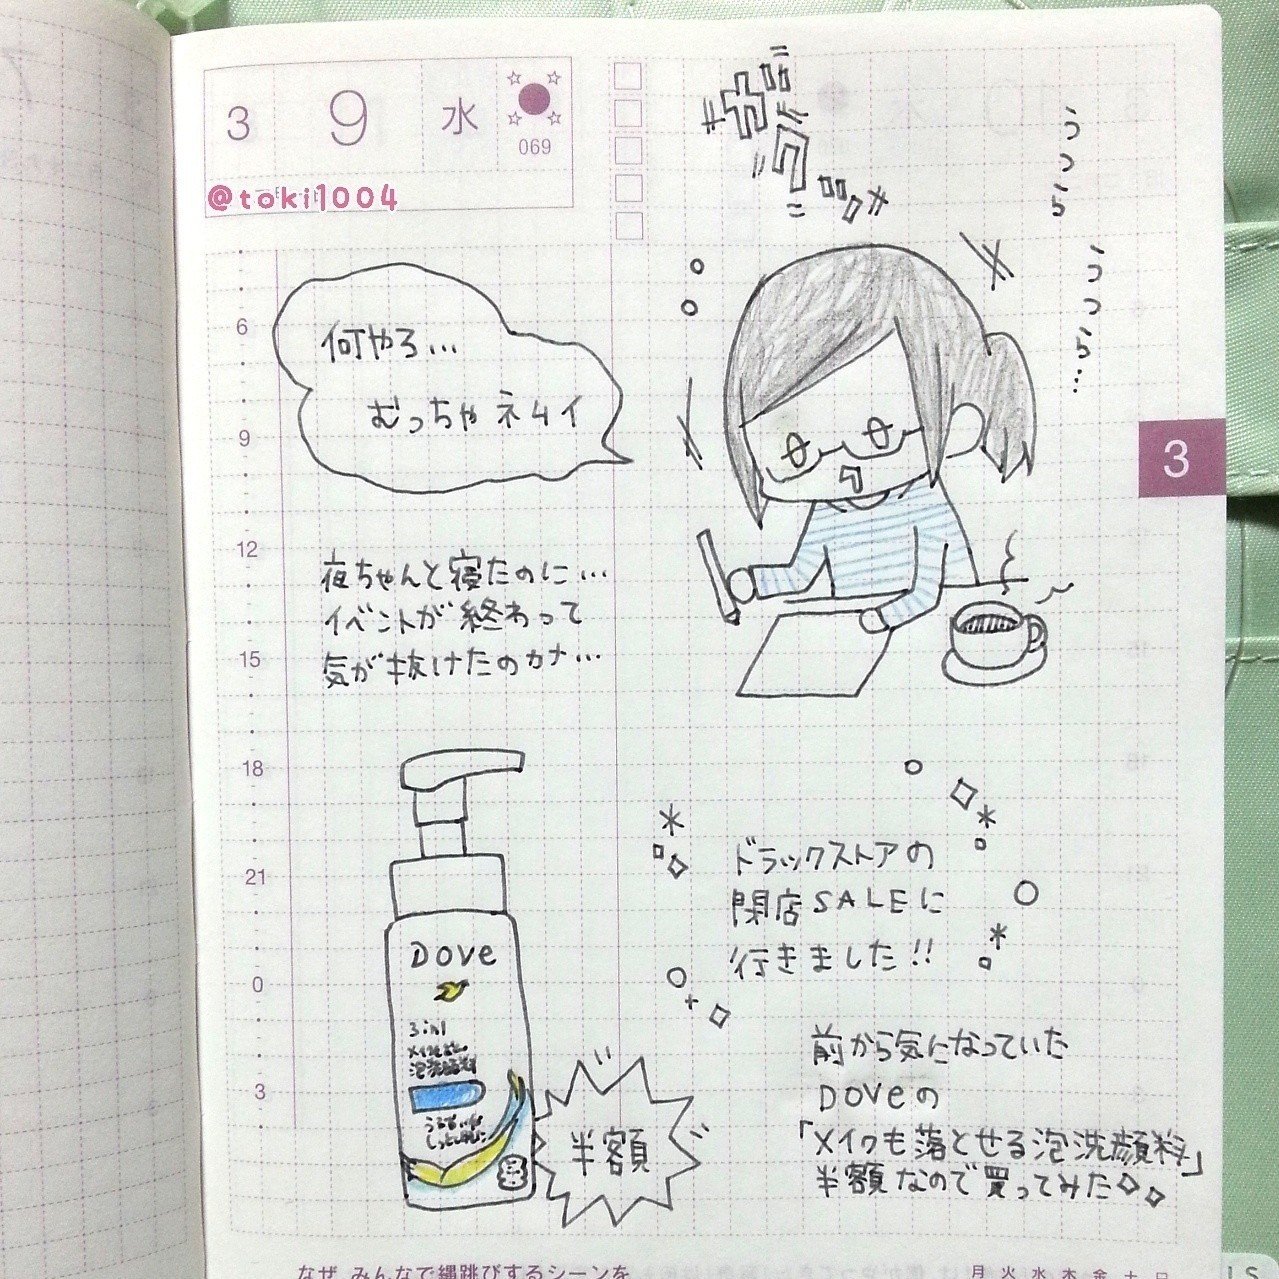 3 9 水
069
@toki1004
ガクッ
うつら
うつら…
何やろ…
むっちゃネムイ
3
6
9
12
15
18
21
0
3
夜ちゃんと寝たのに…
イベントが終わって
気が抜けたのカナ…
Dove
3in1
泡洗顔料
半額
ドラックストアの
閉店SALEに
行きました!!
前から気になっていた
DOVEの
「メイクも落とせる泡洗顔料」
半額なので買ってみた
なぜ、みんなで縄跳びするシーンを
月 火 水 木 金 土 日